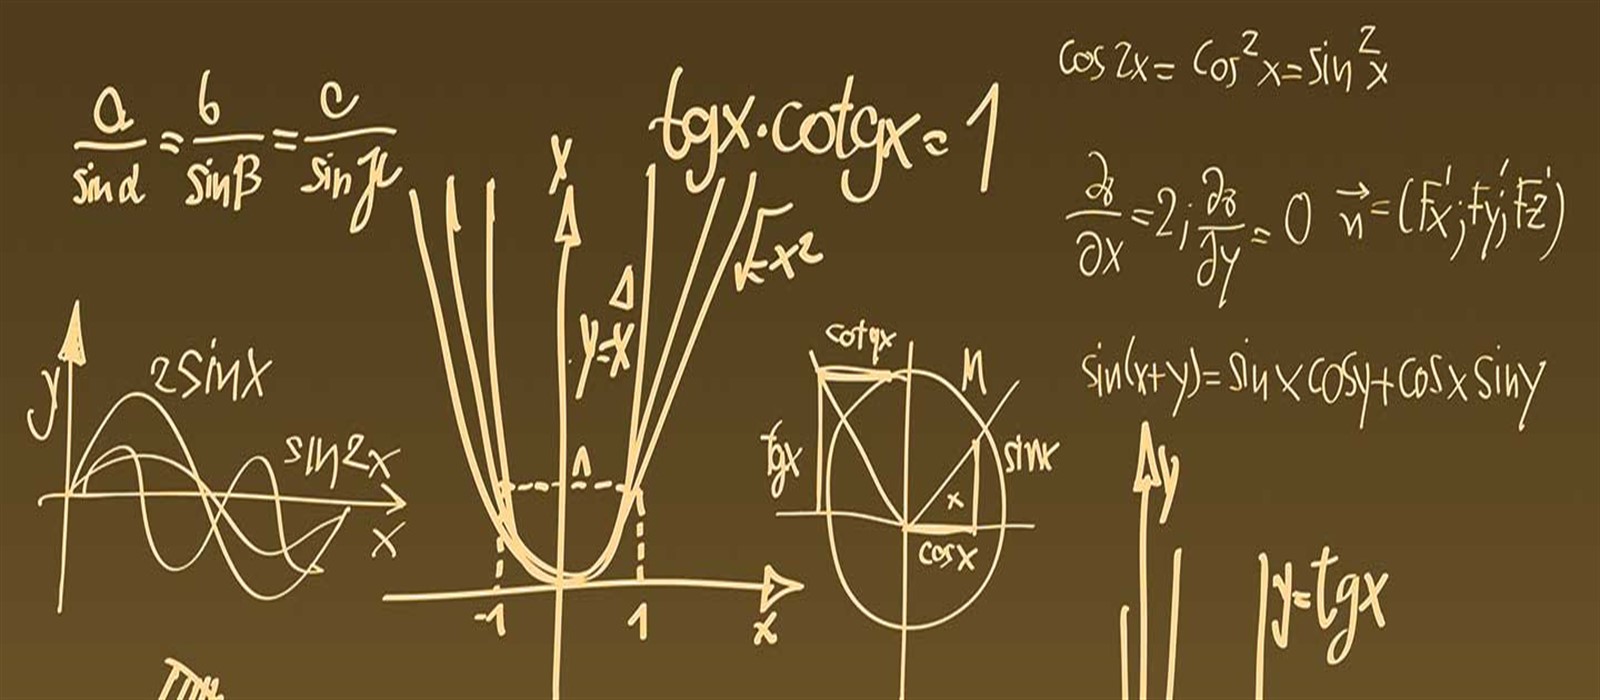 a/sinα = b/sinβ = c/sinγ
tgx·cotgx=1
cos2x=cos²x=sin²x
∂z/∂x=2; ∂z/∂y=0 n⃗=(F'x; F'y; F'z)
sin(x+y)=sinxcosy+cosxsiny
y
2sinx
sin2x
x
x
√x²
y=x
1
-1
1
x
cotgx
M
tgx
sinx
x
cosx
y
y=tgx